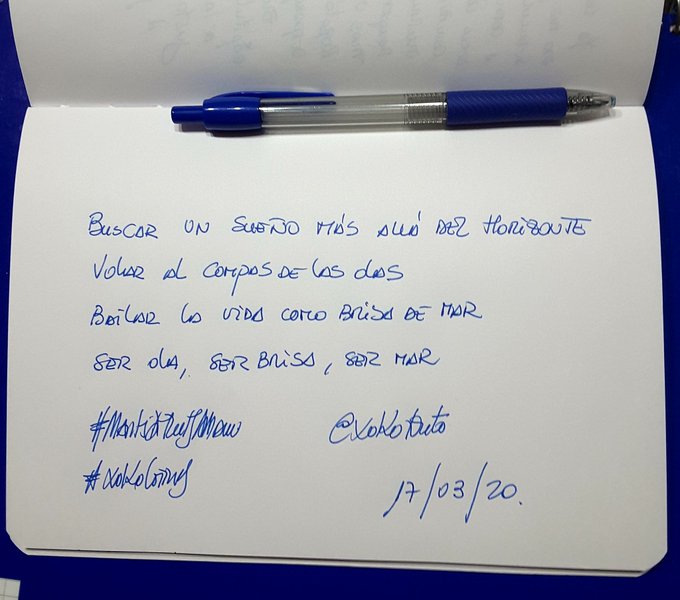 Buscar un sueño más allá del horizonte
Volar al compas de las olas
Bailar la vida como brisa de mar
Ser ola, ser brisa, ser mar
17/03/20.